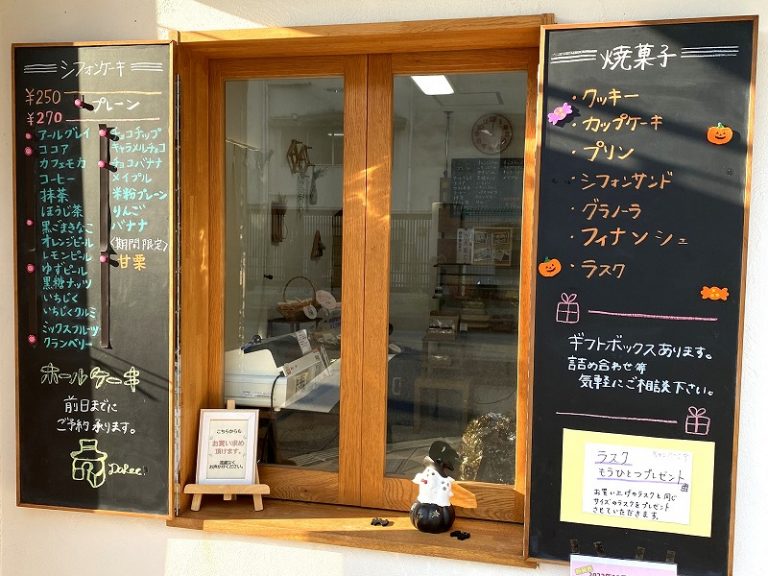 シフォンケーキ
¥250
プレーン
¥270
アールグレイ
ココア
カフェモカ
コーヒー
抹茶
ほうじ茶
黒ごまきなこ
オレンジピール
レモンピール
ゆずピール
黒糖ナッツ
いちじく
いちじくクルミ
ミックスフルーツ
クランベリー
チョコチップ
キャラメルチョコ
チョコバナナ
メイプル
米粉プレーン
りんご
バナナ
〈期間限定〉
甘栗
ホールケーキ
前日までに
ご予約承ります。
こちらからも
お買い求め
頂けます。
お声かけください。
焼菓子
・クッキー
・カップケーキ
・プリン
・シフォンサンド
・グラノーラ
・フィナンシェ
・ラスク
ギフトボックスあります。
詰め合わせ等
気軽にご相談下さい。
ラスク
もうひとつプレゼント
お買い上げのラスクと同じ
サイズのラスクをプレゼント
させていただきます。